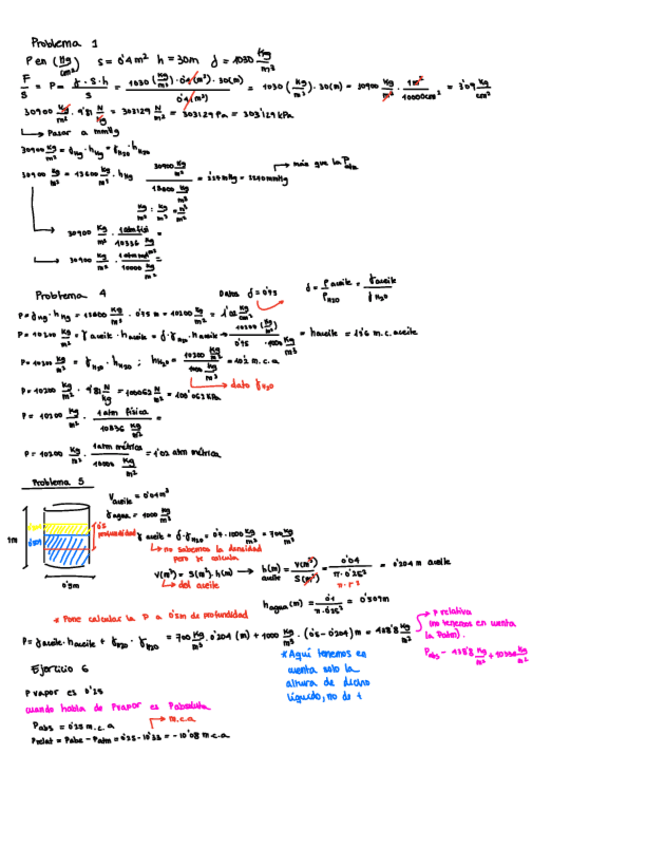 Problema 1
P en (Kg/cm²) S = 0'4 m² h = 30m d = 1030 Kg/m³
F/S = P = γ·S·h/S = 1030 (Kg/m³)·0'4(m²)·30(m)/0'4(m²) = 1030 (Kg/m³)·30(m) = 30900 Kg/m² · 1m²/10000cm² = 3'09 Kg/cm²
30900 Kg/m² · 9'81 N/Kg = 303129 N/m² = 303129 Pa = 303'129 kPa
↳ Pasar a mmHg
30900 Kg/m² = γHg · hHg = γH₂O · hH₂O
30900 Kg/m² = 13600 Kg/m³ · hHg 30900 Kg/m² / 13600 Kg/m³ = 2'27 mHg = 2270 mmHg → más que la Patm
Kg/m² : Kg/m³ = m³/m²
30900 Kg/m² · 1 atm físi / 10336 Kg/m² =
30900 Kg/m² · 1 atm / 10000 Kg/m² =
Problema 4 Datos d = 0'75 d = ρ aceite/ρ H₂O = γ aceite/γ H₂O
P = γHg · hHg = 13600 Kg/m³ · 0'75 m = 10200 Kg/m² = 1'02 Kg/cm²
P = 10200 Kg/m² = γ aceite · h aceite = d · γH₂O · h aceite → 10200 (Kg/m²) / 0'75 · 1000 Kg/m³ = h aceite = 13'6 m.c.aceite
P = 10200 Kg/m² = γH₂O · hH₂O ; hH₂O = 10200 Kg/m² / 1000 Kg/m³ = 10'2 m.c.a
→ dato γH₂O
P = 10200 Kg/m² · 9'81 N/kg = 100062 N/m² = 100'062 kPa
P = 10200 Kg/m² · 1 atm física / 10336 Kg/m² =
P = 10200 Kg/m² · 1 atm métrica / 10000 Kg/m² = 1'02 atm métrica
Problema 5
V aceite = 0'04 m³
γ agua = 1000 Kg/m³
0'5 profundidad
1m
0'5m
γ aceite = d · γH₂O = 0'7 · 1000 Kg/m³ = 700 Kg/m³
↳ no sabemos la densidad
pero se calcula
V(m³) = S(m²) · h(m) → h(m) aceite = V(m³)/S(m²) = 0'04/π·0'25² = 0'204 m aceite
↳ del aceite
π·r²
h agua (m) = 0'1/π·0'25² = 0'509m
* Pone calcular la P a 0'5m de profundidad
P = γ aceite · h aceite + γH₂O · γH₂O = 700 Kg/m³ · 0'204 (m) + 1000 Kg/m³ · (0'5-0'204) m = 438'8 Kg/m²
→ P relativa
(no tenemos en cuenta
la Patm).
Pabs = 438'8 Kg/m² + 10330 Kg/m²
* Aquí tenemos en
cuenta solo la
altura de dicho
líquido, no de t
Ejercicio 6
P vapor es 0'25
cuando habla de Pvapor es Pabsoluta
Pabs = 0'25 m.c.a → m.c.a
Prelat = Pabs - Patm = 0'25 - 10'33 = - 10'08 m.c.a